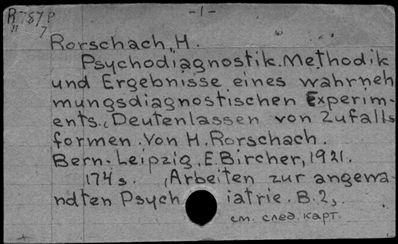 R 787 P
" 7
-1-
Rorschach, H.
Psychodiagnostik. Methodik
und Ergebnisse eines wahrneh
mungsdiagnostischen Experim-
ents. (Deutenlassen von Zufalls
formen. Von H. Rorschach.
Bern-Leipzig, E. Bircher, 1921.
174 s. (Arbeiten zur angewa-
ndten Psych iatrie. B. 2).
см. след. карт.